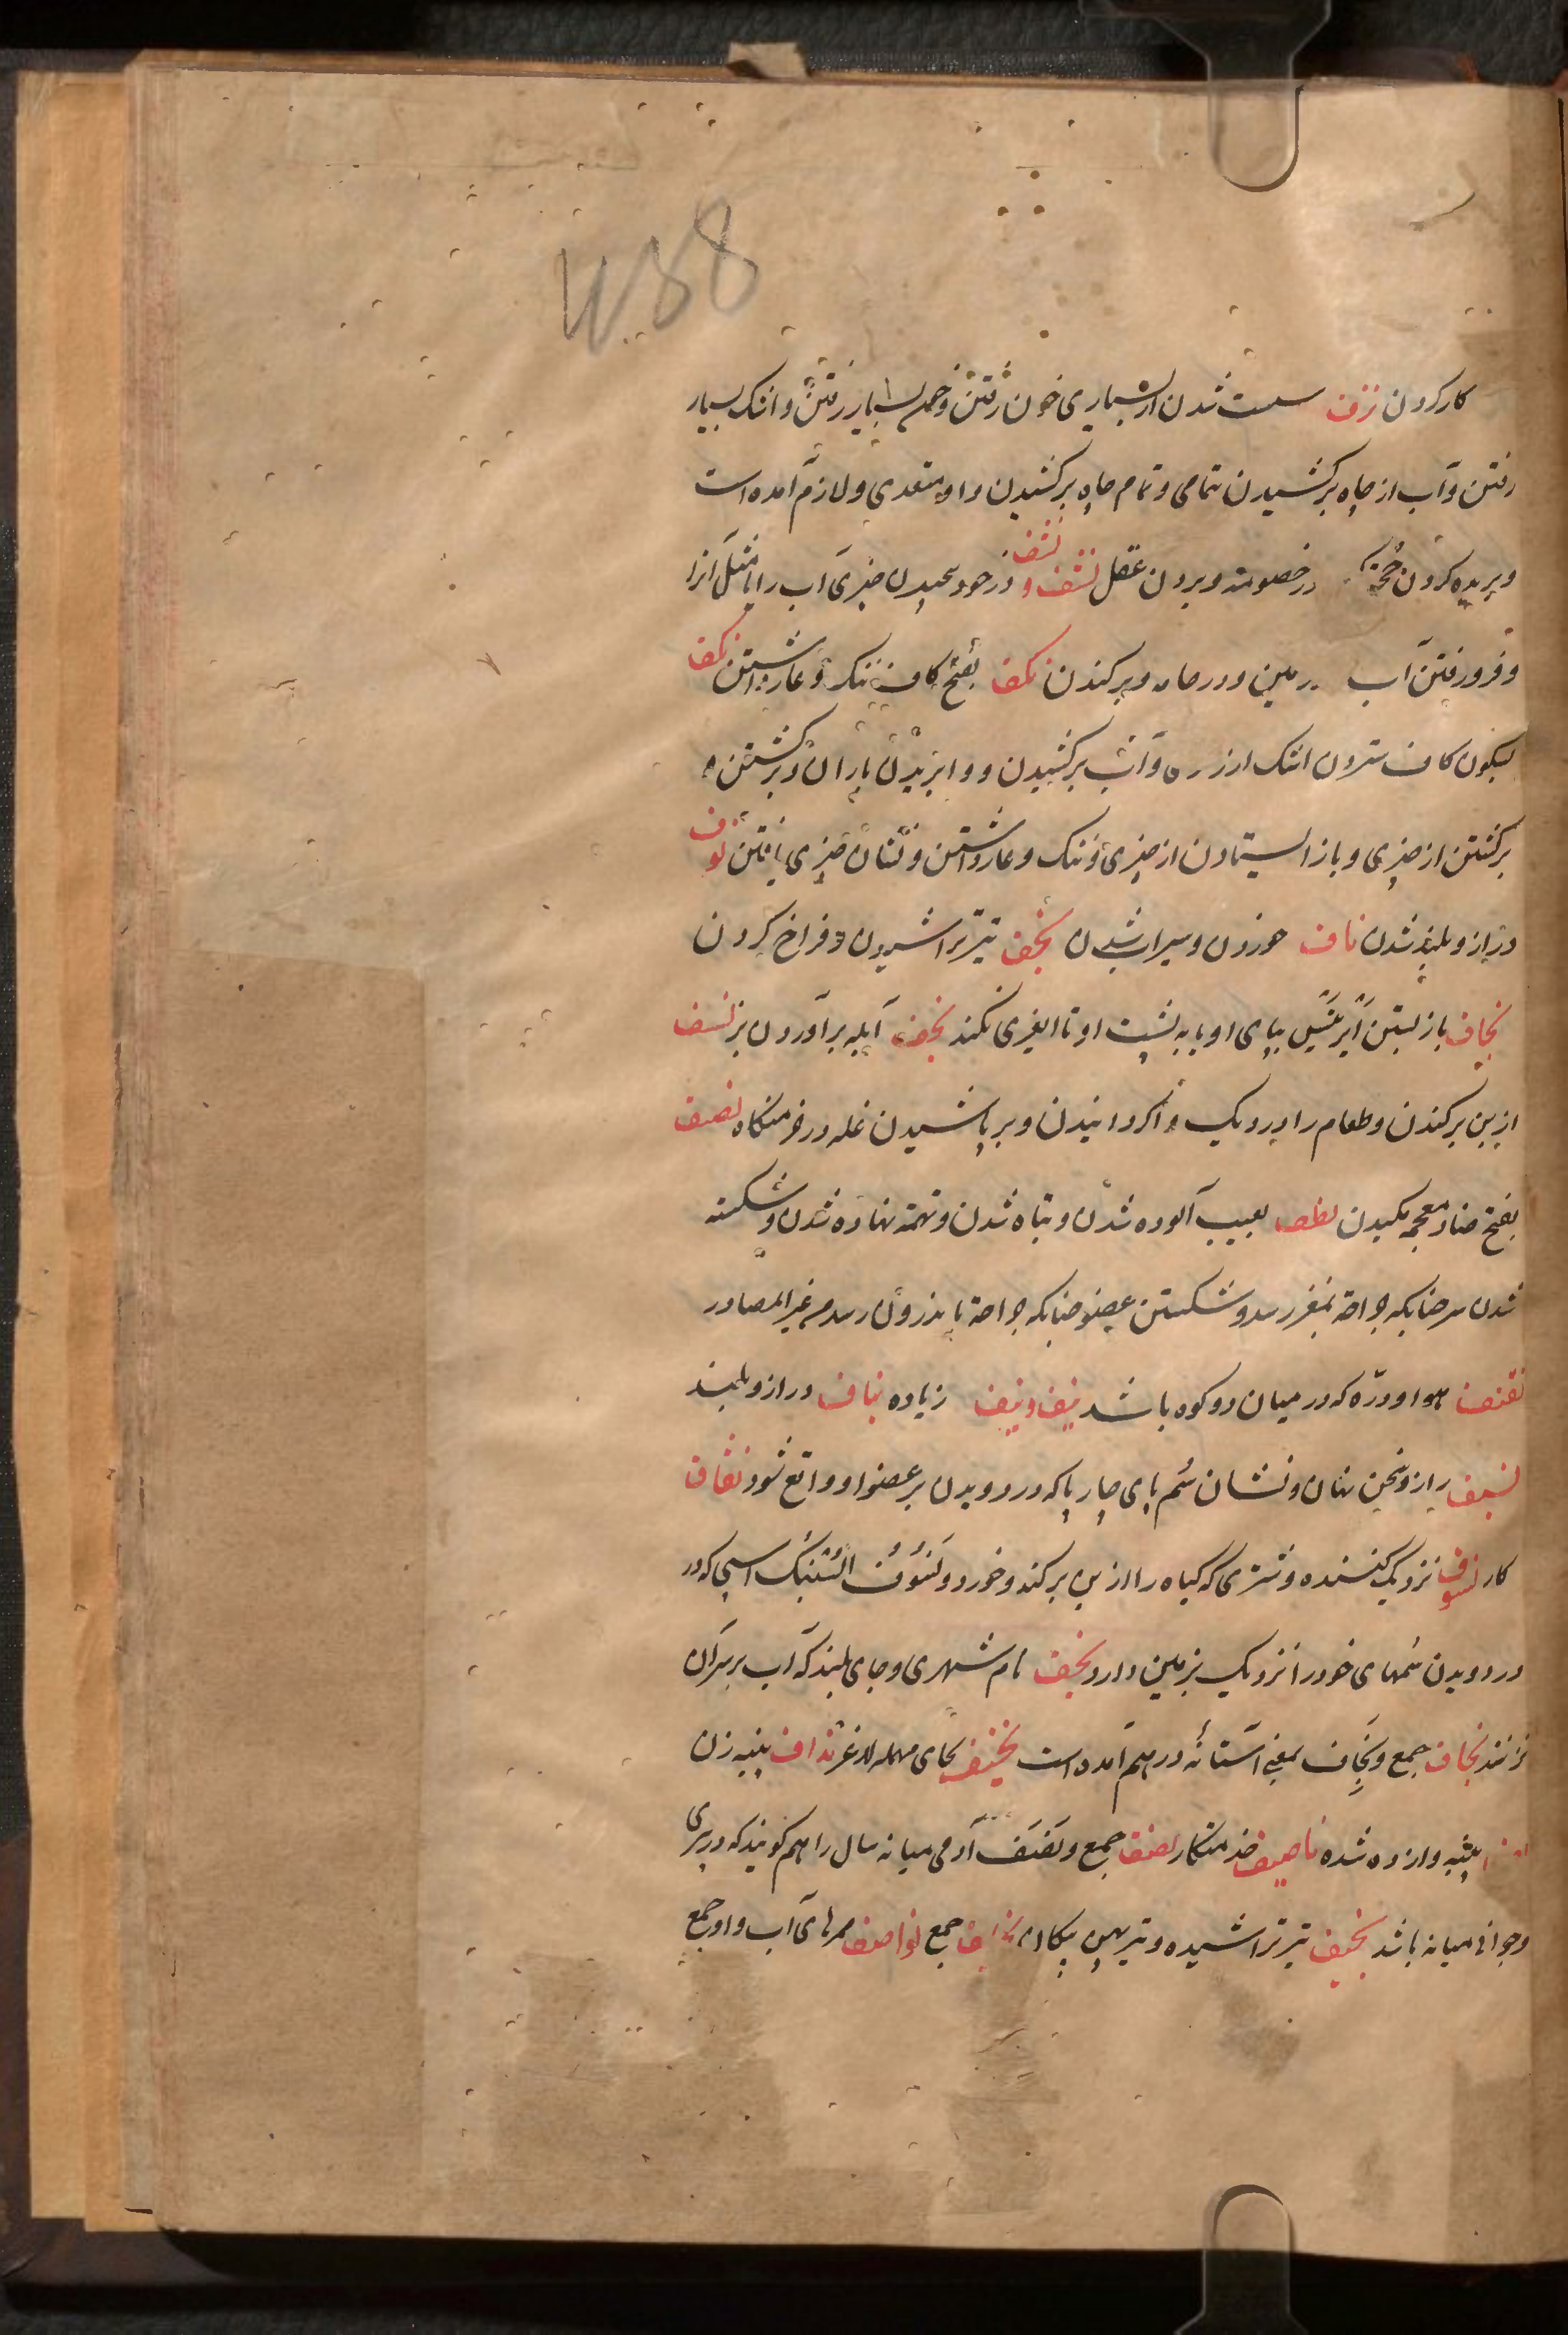 W.58
کار کردن نزف سست شدن از بسیاری خون رفتن و خون بسیار رفتن و اشک بسیار
رفتن و آب از چاه برکشیدن بتمامی و تمام چاه برکشیدن و او متعدی و لازم آمده است
و بریده کردن حجة در خصومت و بردن عقل نشف و نشف در خود چیدن چیزی آب را یا مثل آنرا
و فرو رفتن آب در زمین و در جامه و برکندن نکف بفتح کاف ننک و عار داشتن نکف
بسکون کاف ستردن اشک از رو و آب برکشیدن و وا بریدن باران و برکشتن
برکشتن از چیزی و باز ایستادن از چیزی و ننک و عار داشتن و نشان چیزی یافتن نوف
دراز و بلند شدن ناف خوردن و سیراب شدن نجف تیر تراشیدن و فراخ کردن
نجاف باز بستن بپای او یا به پشت او تا نکند نجف آبله برآوردن بز نسف
از بن برکندن و طعام را در دیک واکردانیدن و بر پاشیدن غله در خرمنکاه نضف
بفتح ضاد معجمه مکیدن نطف بعیب آلوده شدن و تباه شدن و تهمت نهاده شدن و شکسته
شدن سر چنانکه جراحة بمغز رسد و شکستن عضو چنانکه جراحة باندرون رسد م غیر المصادر
نفنف هوا و دره که در میان دو کوه باشد نیف و نیف زیاده نیاف دراز و بلند
نسیف راز و سخن نهان و نشان سُم پای چارپا که در دویدن بر عضو او واقع شود نغاف
کار نسوف نزدیک کننده و شتری که کیاه را از بن برکند و خورد و نَسُوف السُّنبُک اسپی که در
در دویدن سُمهای خود را نزدیک بزمین دارد نجف نام شهری و جای بلند که آب بر سر آن
نرسد نجاف جمع و نِجَاف بمعنی آستانه در هم آمده است نحیف بحای مهمله لاغر نداف پنبه زن
پنبه وا زده شده ناصف خدمتکار نصف جمع و نَصَف آدمی میانه سال را هم کویند که در پیری
و جوانی میانه باشد نجیف تیر تراشیده و تیر پهن پیکان جمع نواصف ممرهای آب و او جمع